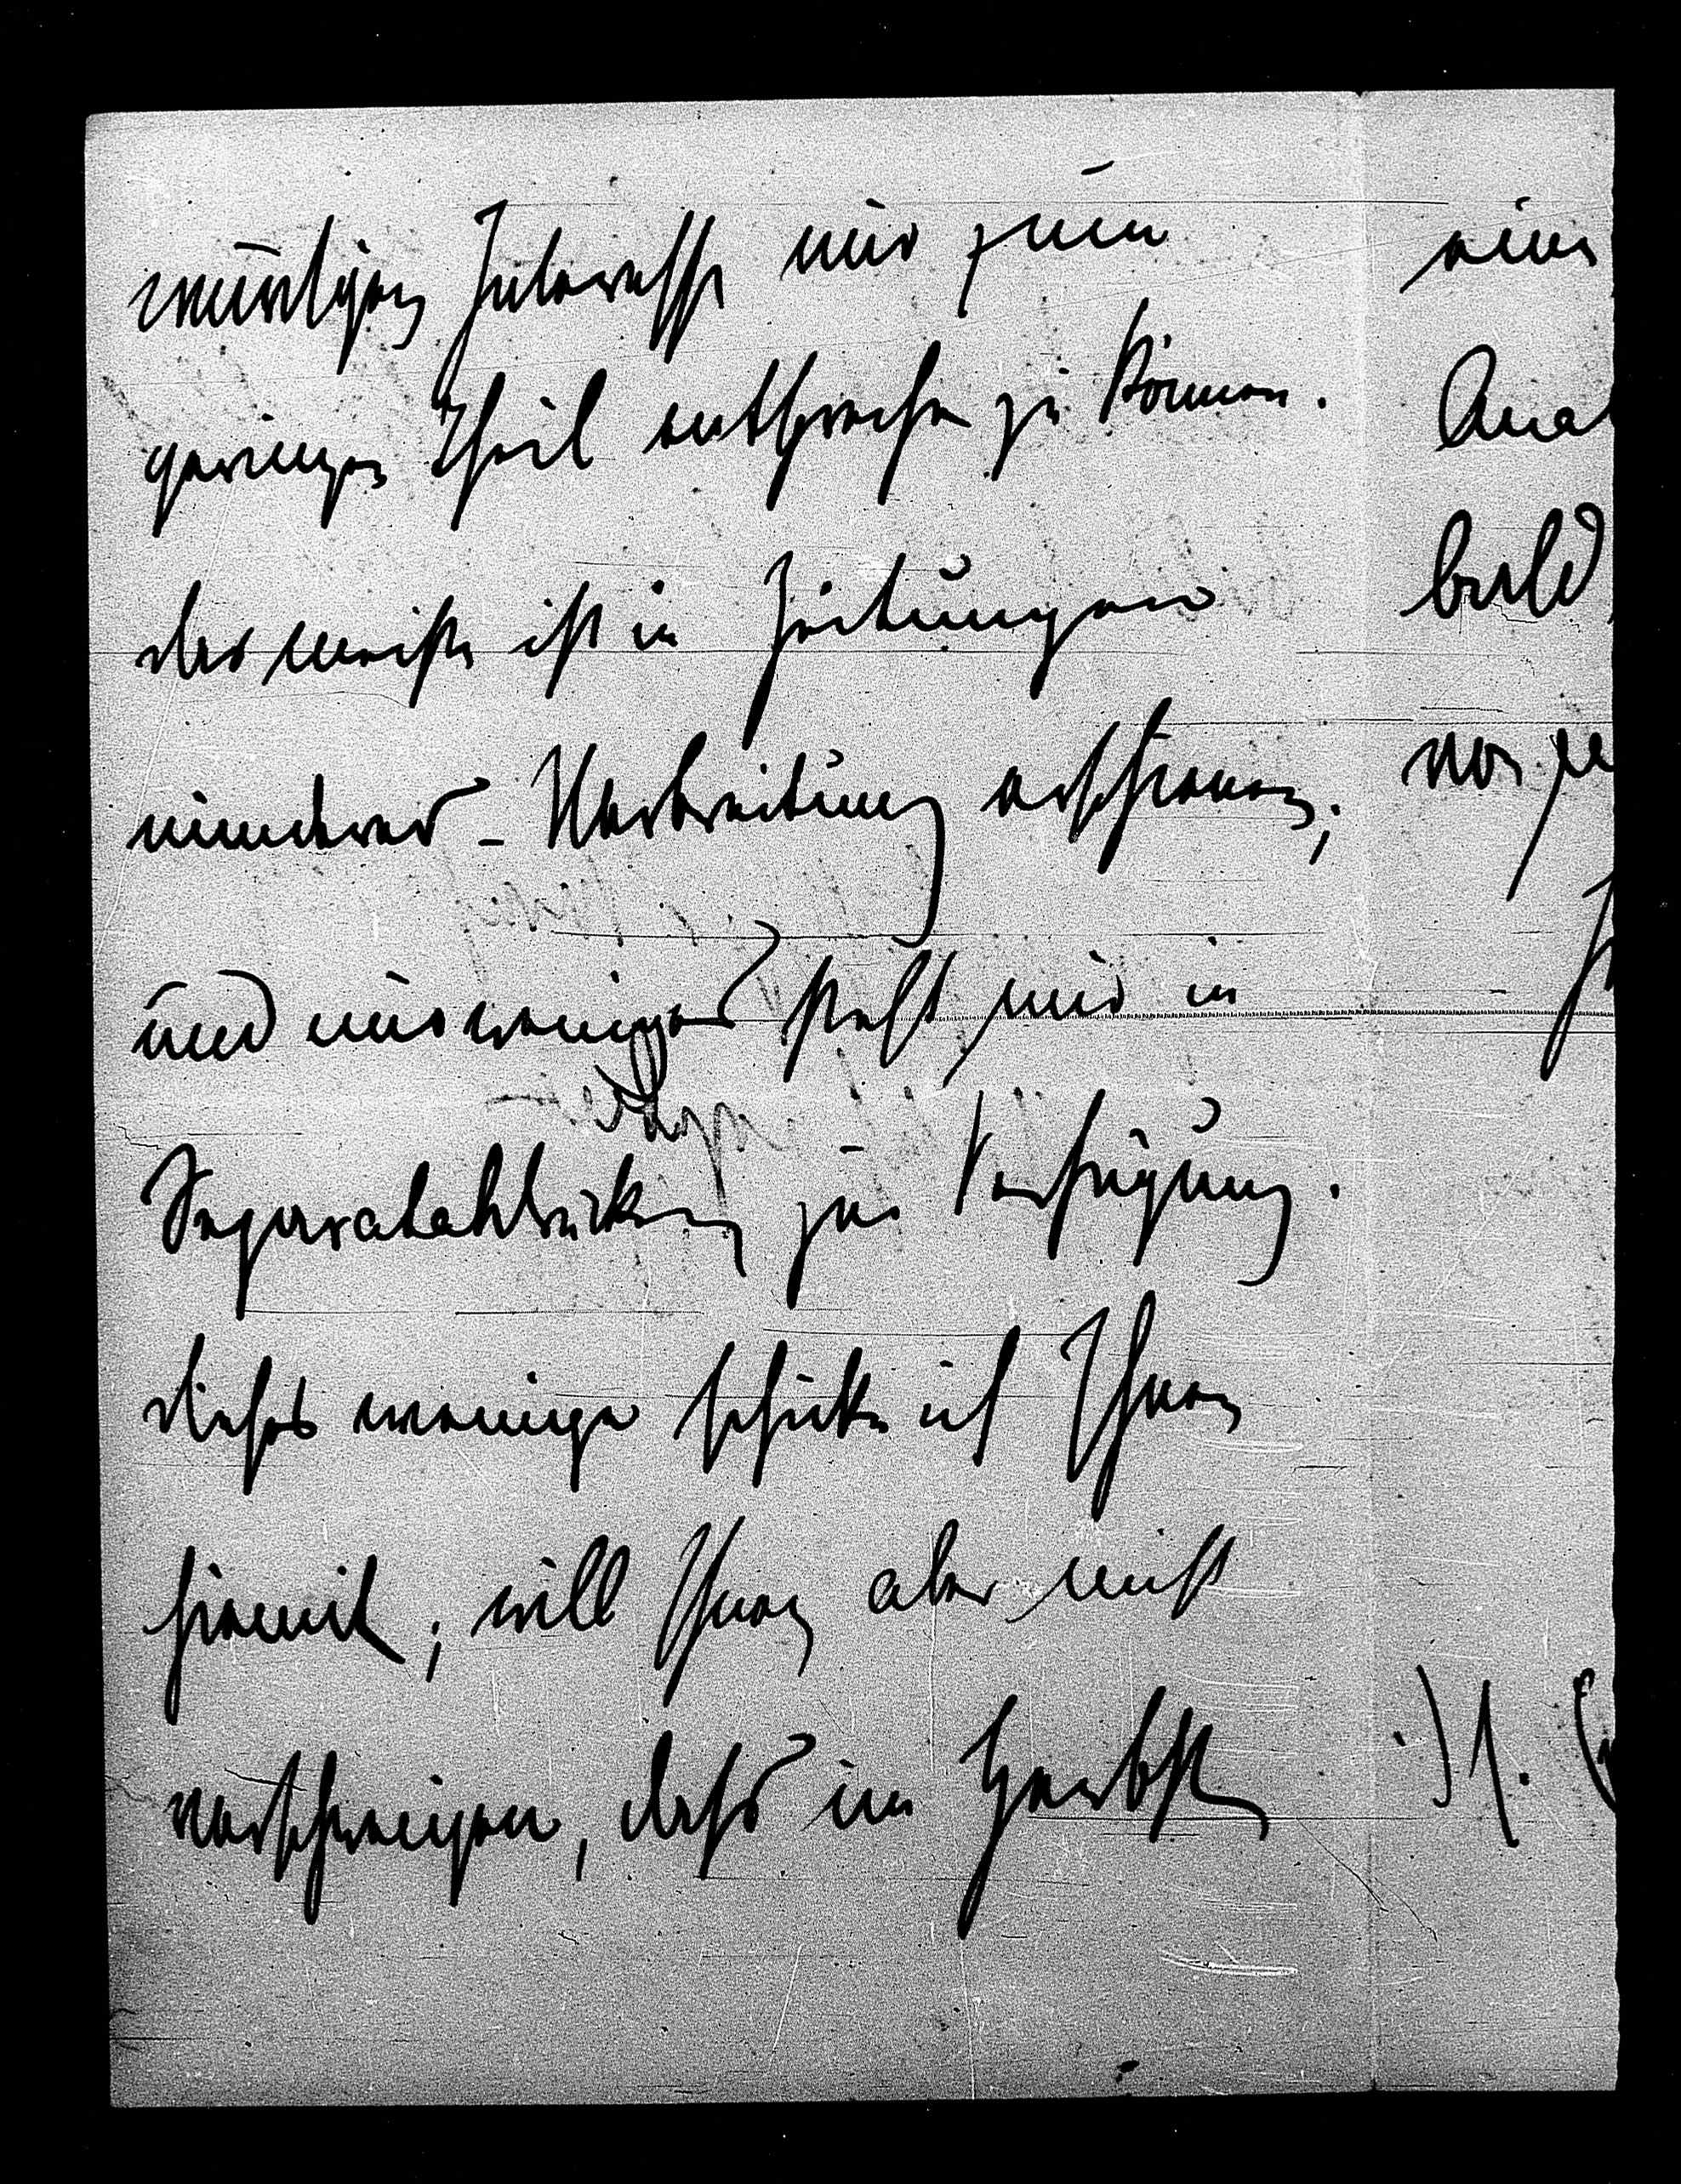 würdigen Interesse nur zum
geringen Theil entsprechen zu können.
das meiste ist in Zeitungen
minderer - Verbreitung erschienen;
und nur weniges steht mir in
Separatabdrücken zur Verfügung.
dieses wenige schicke ich Ihnen
hiemit; will Ihnen aber nicht
verschweigen, dass im Herbst
eine
bald
vor